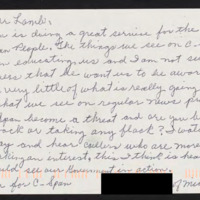 ar Lamb:
n is doing a great service for the
an People. The things we see on C-
n educating us and I am not se
ress that he want us to be awar
very little of what is really going
what we see on regular news pro
Span become a threat and are you b
ack or taking any flack? I watc
y and hear Callers who are more
king an interest, this I think is hear
ould see our Government in action.
for C-Span
of me